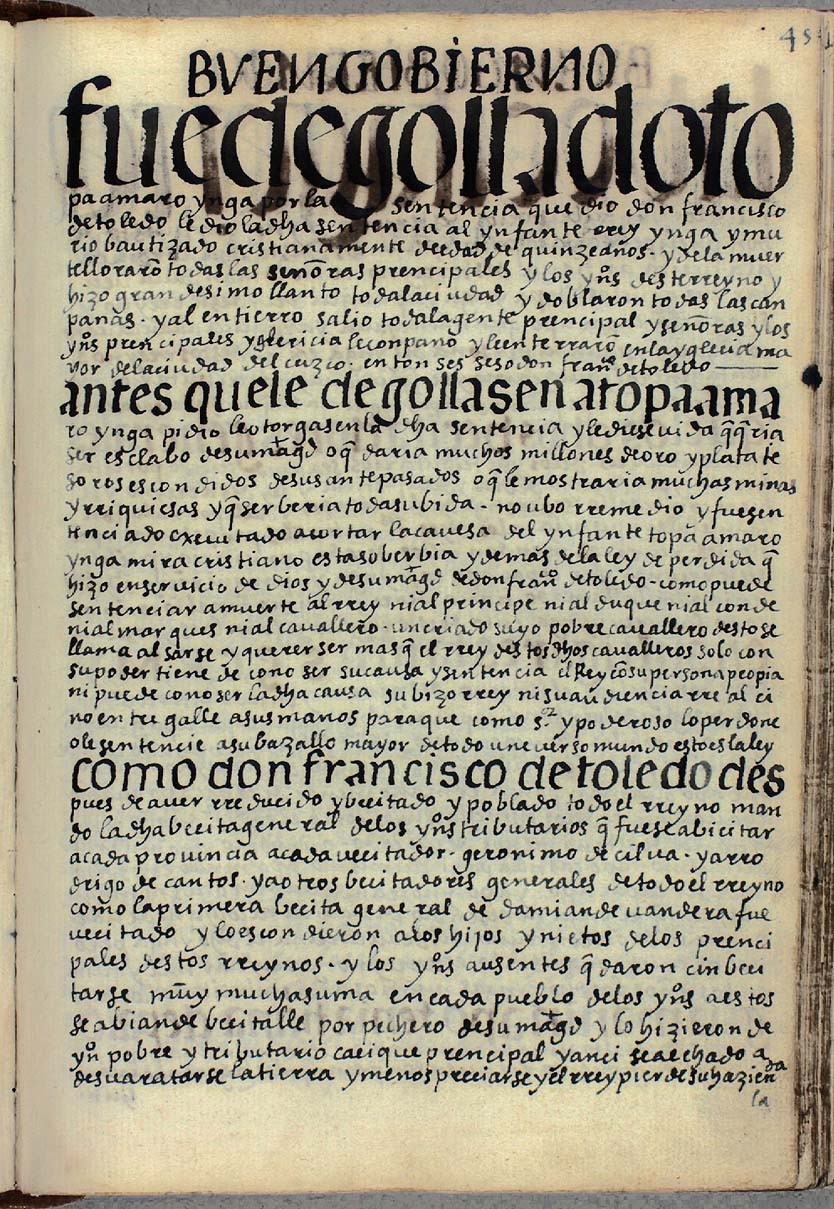 451
BVEN GOBIERNO
fue degollado to
pa amaro ynga por la sentencia que dio don francisco
de toledo le dio la dha sentencia al ynfante rrey ynga y mu
rio bautizado cristianamente de edad de quinze años · y de la muer
te lloraron todas las señoras prencipales y los yos deste rreyno y
hizo grandesimo llanto toda la ciudad y doblaron todas las can
panas · y al entierro salio toda la gente prencipal y señoras y los
yos prencipales y glericia le conpaño y le enterraron en la yglecia ma
yor de la ciudad del cuzco · entonses seso don franco de toledo
antes que le degollasen a topa ama
ro ynga pidio le otorgasen la dha sentencia y le diese vida q̃ q̃ria
ser esclabo de su magd o q̃ daria muchos millones de oro y plata te
soros escondidos de sus antepasados o q̃ le mostraria muchas minas
y rriquiesas y q̃ serberia toda su bida · no ubo rremedio y fue sen
tenciado executado a cortar la cavesa del ynfante topa amaro
ynga mira cristiano esta soberbia y demas de la ley de perdida q̃
hizo en servicio de dios y de su magd don franco de toledo · como puede
sentenciar a muerte al rrey ni al principe ni al duque ni al conde
ni al marques ni al cavallero · un criado suyo pobre cavallero desto se
llama alsarse y querer ser mas q̃ el rrey destos dhos cavalleros solo con
su poder tiene de conoser su causa y sentencia el Rey cõ su persona propia
ni puede conoser la dha causa su bizorrey ni su audiencia rreal ci
no entregalle a sus manos para que como sr y poderoso lo perdone
o le sentencie a su bazallo mayor de todo uneverso mundo esto es la ley
como don francisco de toledo des
pues de aver rreducido y becitado y poblado todo el rreyno man
do la dha becita general de los yos tributarios q̃ fuese a bicitar
a cada provincia a cada vecitador · geronimo de cilva · y a rro
drigo de cantos · y a otros becitadores generales de todo el rreyno
como la primera becita general de damian de vandera fue
vecitado y lo escondieron a los hijos y nietos de los prenci
pales destos rreynos · y los yos ausentes q̃ daron cin beci
tarse muy mucha suma en cada pueblo de los yos a estos
se abian de becitalle por pechero de su magd y lo hizieron de
yo pobre y tributario cacique prencipal y anci se a echado a
desvaratarse la tierra y menospreciarse y el rrey pierde su hazienda
la